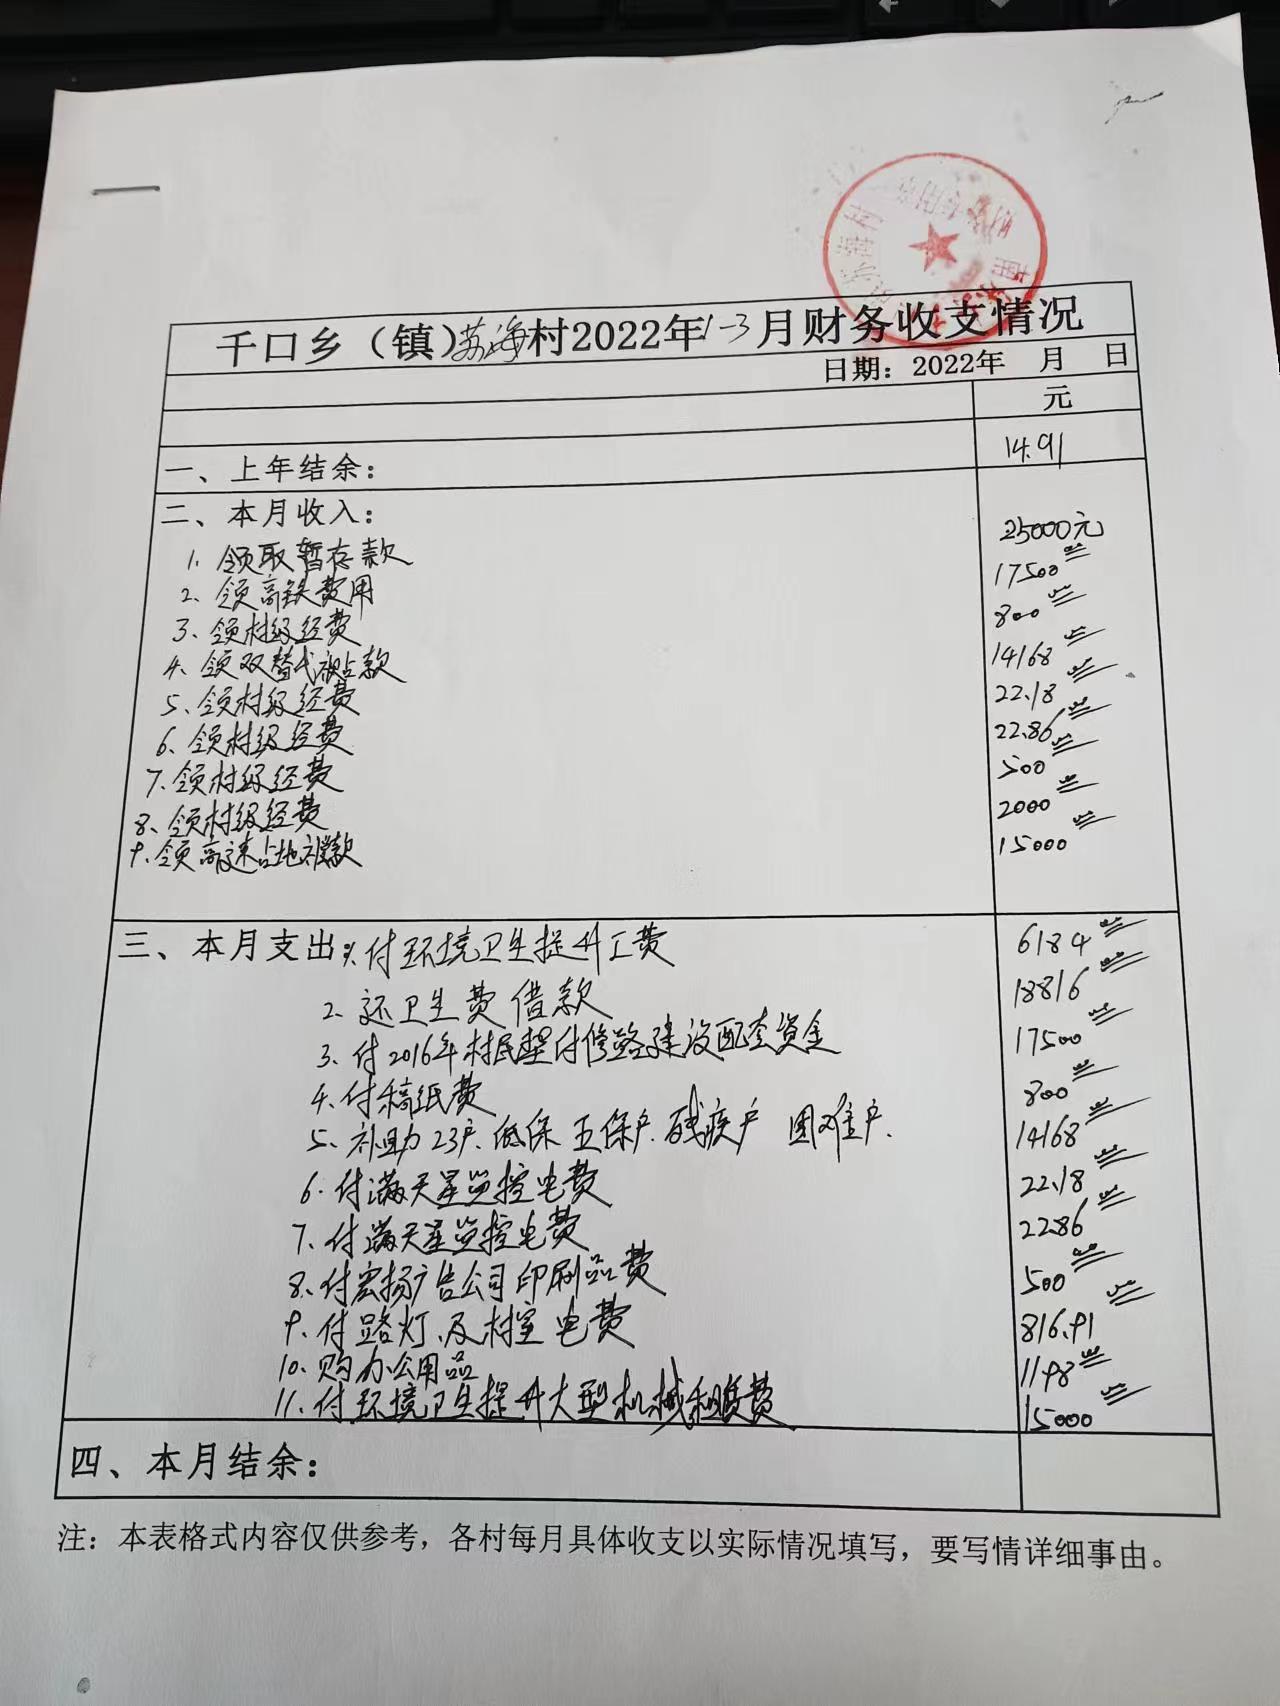 千口乡（镇）苏海村2022年1-3月财务收支情况
日期：2022年 月 日
元
一、上年结余： 14.91
二、本月收入：
1、领取暂存款 25000元
2、领高铁费用 17500
3、领村级经费 800
4、领双替代补贴款 14168
5、领村级经费 22.18
6、领村级经费 22.86
7、领村级经费 500
8、领村级经费 2000
9、领高速占地补偿款 15000
三、本月支出：1、付环境卫生提升工费 6184
2、还卫生费借款 18816
3、付2016年村民垫付修路建设配套资金 17500
4、付稿纸费 800
5、补助23户.低保 五保户.残疾户 困难户. 14168
6、付满天星监控电费 22.18
7、付满天星监控电费 22.86
8、付宏扬广告公司印刷品费 500
9、付路灯、及村室电费 816.91
10、购办公用品 1198
11、付环境卫生提升大型机械租赁费 15000
四、本月结余：
注：本表格式内容仅供参考，各村每月具体收支以实际情况填写，要写情详细事由。